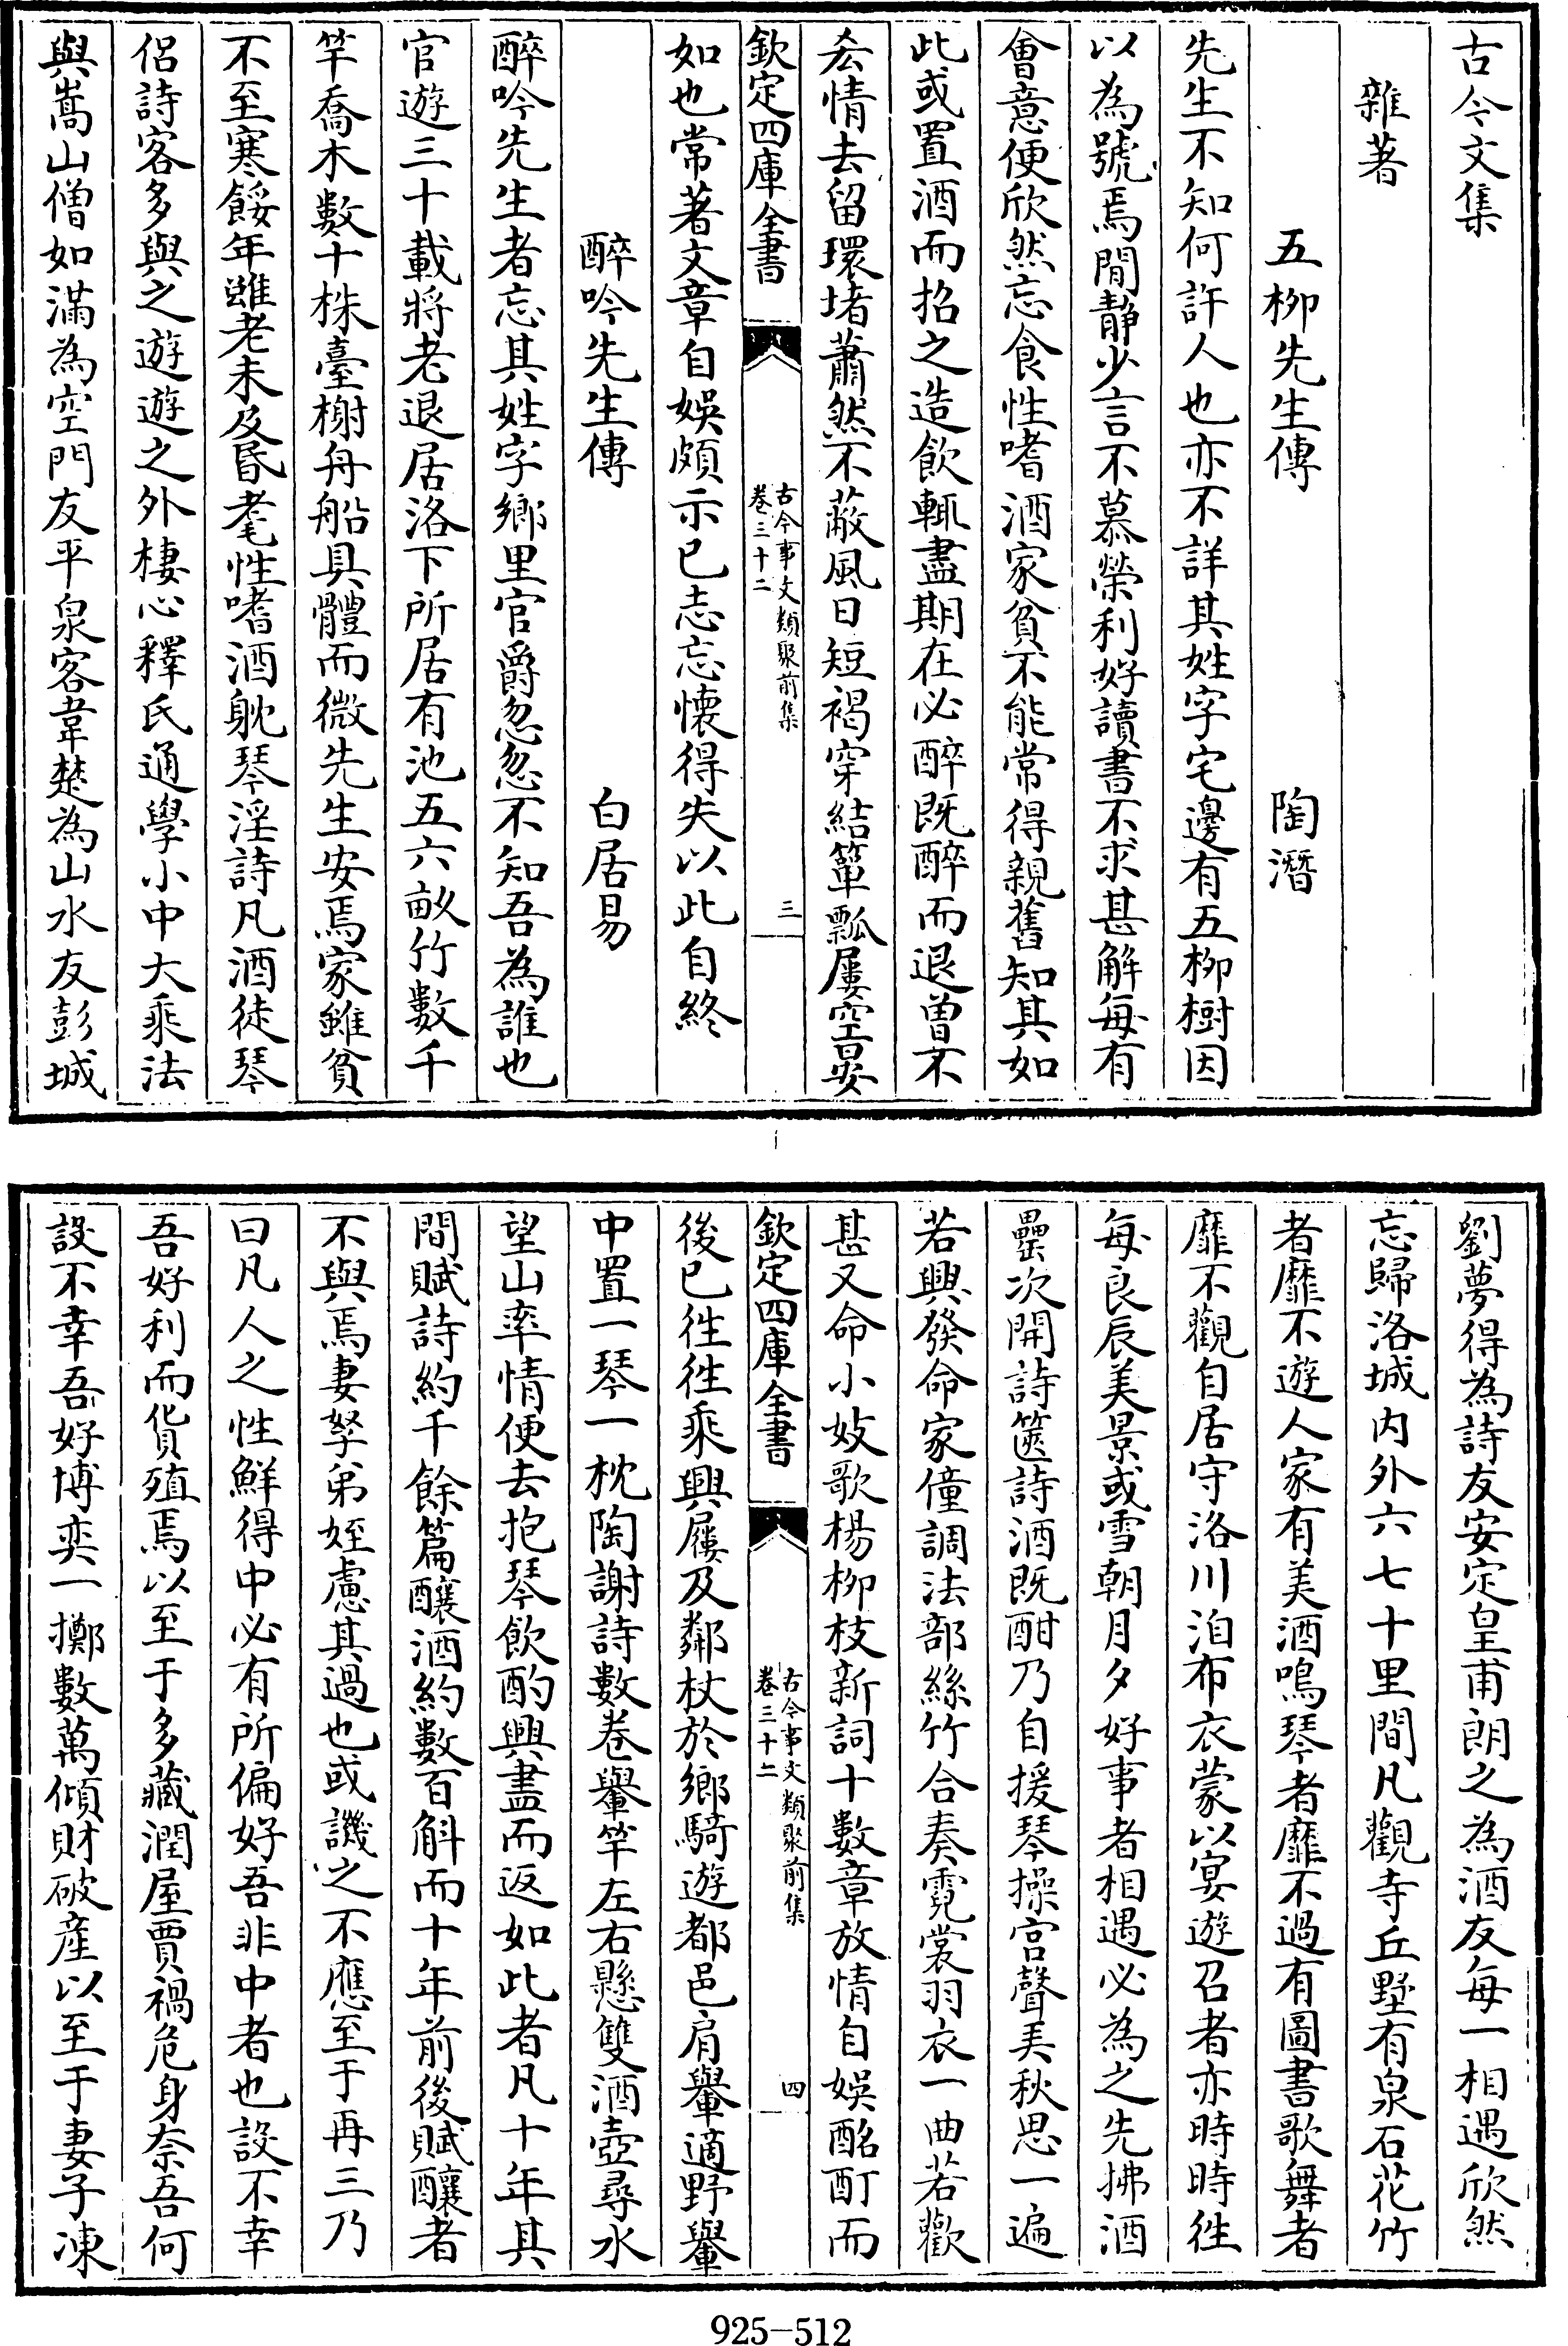 古今文集
雜著
五柳先生傳　陶潛
先生不知何許人也亦不詳其姓字宅邊有五柳樹因
以為號焉閒静少言不慕榮利好讀書不求甚解每有
會意便欣然忘食性嗜酒家貧不能常得親舊知其如
此或置酒而招之造飲輒盡期在必醉既醉而退曾不
厺情去留環堵蕭然不蔽風日短褐穿結簞瓢屢空晏
欽定四庫全書　古今事文類聚前集　卷三十二　三
如也常著文章自娛頗示已志忘懷得失以此自終
醉吟先生傳　白居易
醉吟先生者忘其姓字鄉里官爵忽忽不知吾為誰也
官遊三十載將老退居洛下所居有池五六畝竹數千
竿喬木數十株臺榭舟船具體而微先生安焉家雖貧
不至寒餒年雖老未及昏耄性嗜酒躭琴淫詩凡酒徒琴
侣詩客多與之遊遊之外棲心釋氏通學小中大乘法
與嵩山僧如滿為空門友平泉客韋楚為山水友彭城
劉夢得為詩友安定皇甫朗之為酒友每一相遇欣然
忘歸洛城内外六七十里間凡觀寺丘墅有泉石花竹
者靡不遊人家有美酒鳴琴者靡不過有圖書歌舞者
靡不觀自居守洛川洎布衣蒙以宴遊召者亦時時徃
每良辰美景或雪朝月夕好事者相遇必為之先拂酒
罍次開詩篋詩酒既酣乃自援琴操宫聲弄秋思一遍
若興發命家僮調法部絲竹合奏霓裳羽衣一曲若歡
甚又命小妓歌楊柳枝新詞十數章放情自娛酩酊而
欽定四庫全書　古今事文類聚前集　卷三十二　四
後已徃徃乘興屨及鄰杖於鄉騎遊都邑肩轝適野轝
中置一琴一枕陶謝詩數卷轝竿左右懸雙酒壺尋水
望山率情便去抱琴飲酌興盡而返如此者凡十年其
間賦詩約千餘篇釀酒約數百斛而十年前後賦釀者
不與焉妻孥弟姪慮其過也或譏之不應至于再三乃
曰凡人之性鮮得中必有所偏好吾非中者也設不幸
吾好利而貨殖焉以至于多藏潤屋賈禍危身奈吾何
設不幸吾好博奕一擲數萬傾財破產以至于妻子凍
925-512